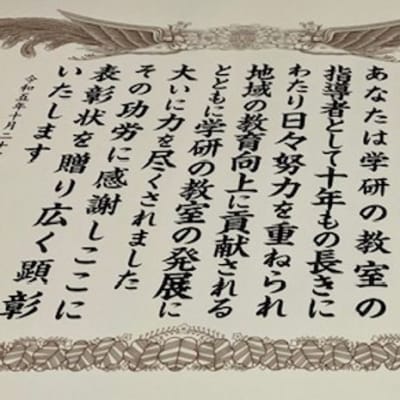 あなたは学研の教室の
指導者として十年もの長きに
わたり日々努力を重ねられ
地域の教育向上に貢献される
とともに学研の教室の発展に
大いに力を尽くされました
その功労に感謝しここに
表彰状を贈り広く顕彰
いたします
令和五年十月二十